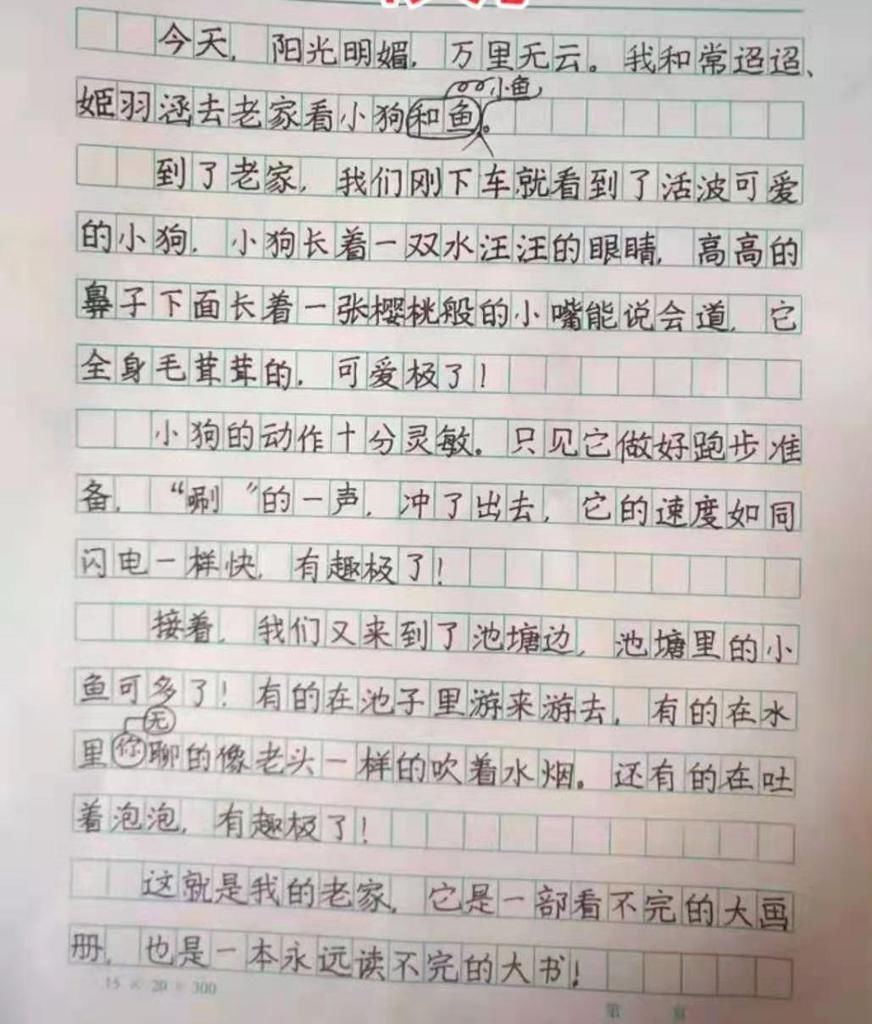 今天，阳光明媚，万里无云。我和常迢迢、
小鱼
姬羽涵去老家看小狗和鱼。
到了老家，我们刚下车就看到了活波可爱
的小狗，小狗长着一双水汪汪的眼睛，高高的
鼻子下面长着一张樱桃般的小嘴能说会道，它
全身毛茸茸的，可爱极了！
小狗的动作十分灵敏。只见它做好跑步准
备，“唰”的一声，冲了出去，它的速度如同
闪电一样快，有趣极了！
接着，我们又来到了池塘边，池塘里的小
鱼可多了！有的在池子里游来游去，有的在水
无
里你聊的像老头一样的吹着水烟。还有的在吐
着泡泡，有趣极了！
这就是我的老家，它是一部看不完的大画
册，也是一本永远读不完的大书！
15 × 20 = 300
第 页